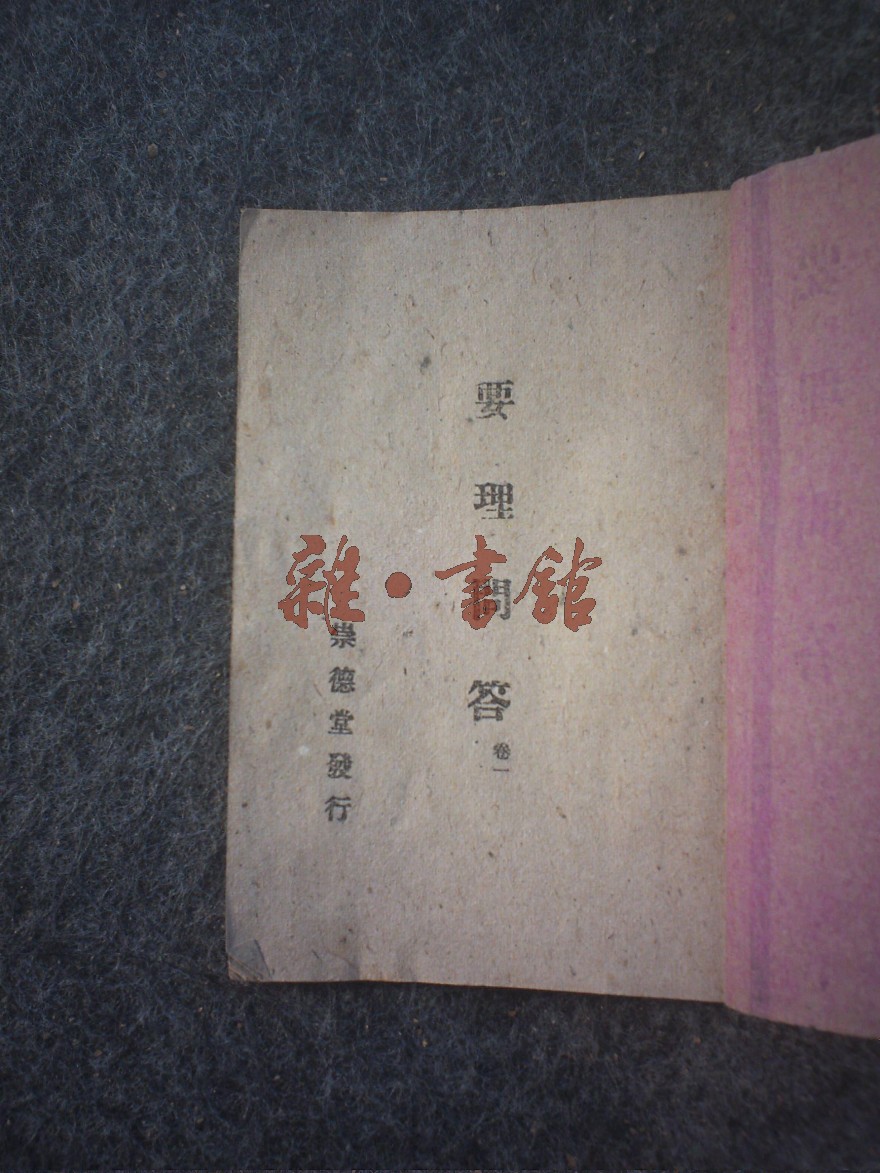 要理問答 卷一
崇德堂發行
雜·書館